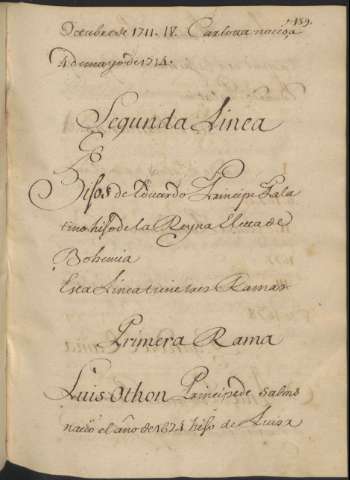 159.
Octubre de 1711. IV. Carlota nacio a
4 de mayo de 1714.
Segunda Linea
Hijos de Eduardo Principe Pala
tino hijo de la Reyna Electa de
Bohemia
Esta Linea tiene tres Ramas
Primera Rama
Luis Othon Principe de Salms
nacio el año de 1674 hijo de Luisa